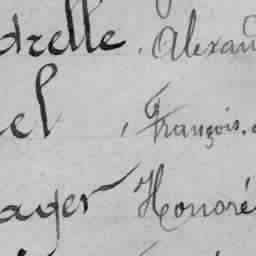 drelle, Alexan
el, François.
ager Honoré